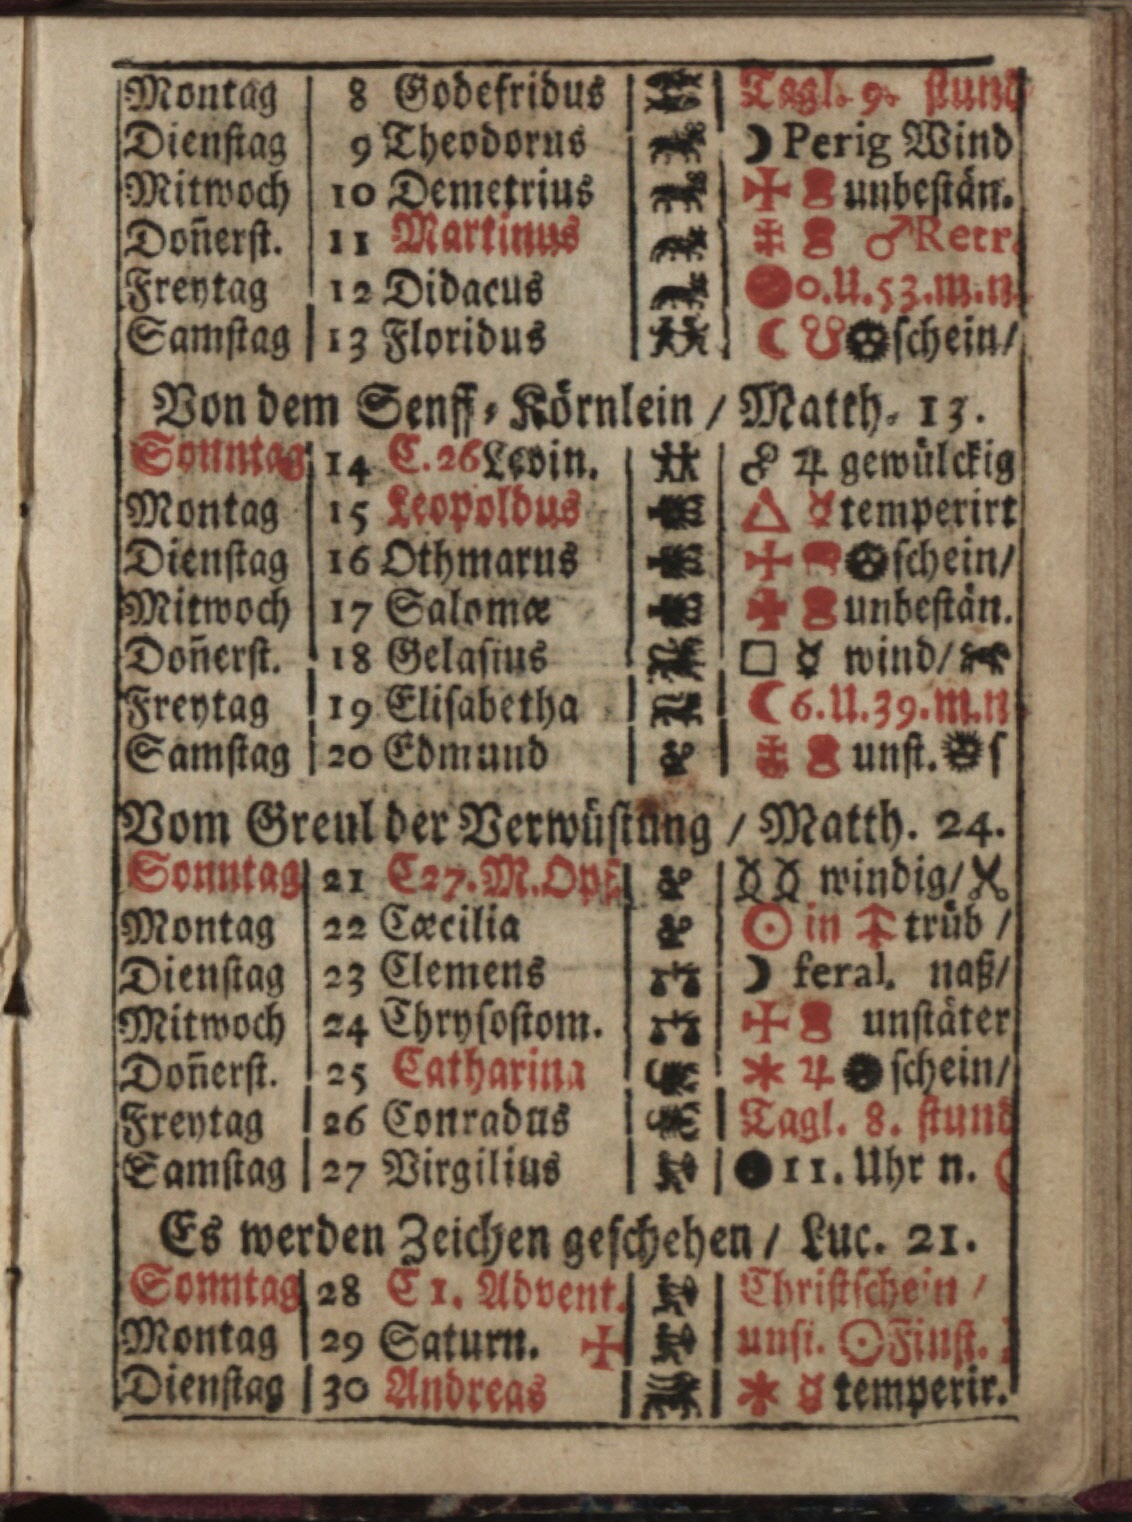 Montag 8 Godefridus Tagl. 9. stund
Dienstag 9 Theodorus ☽ Perig Wind
Mitwoch 10 Demetrius unbestän.
Don̄erst. 11 Martinus ♂ Retr.
Freytag 12 Didacus 0.U.53.m.n.
Samstag 13 Floridus ☾ ☋ schein/
Von dem Senff-Körnlein / Matth. 13.
Sonntag 14 C.26 Levin. ☍ ♃ gewülckig
Montag 15 Leopoldus △ ☿ temperirt
Dienstag 16 Othmarus schein/
Mitwoch 17 Salomæ unbestän.
Don̄erst. 18 Gelasius □ ☿ wind/
Freytag 19 Elisabetha ☾ 6.U.39.m.n
Samstag 20 Edmund unst. s
Vom Greul der Verwüstung / Matth. 24.
Sonntag 21 C27.M.Opf windig/
Montag 22 Cæcilia ☉ in trüb /
Dienstag 23 Clemens ☽ feral. naß/
Mitwoch 24 Chrysostom. unstäter
Don̄erst. 25 Catharina ⚹ ♃ schein/
Freytag 26 Conradus Tagl. 8. stund
Samstag 27 Virgilius ● 11. Uhr n.
Es werden Zeichen geschehen / Luc. 21.
Sonntag 28 C 1. Advent. Christschein /
Montag 29 Saturn. unst. ☉ Finst.
Dienstag 30 Andreas ⚹ ☿ temperir.